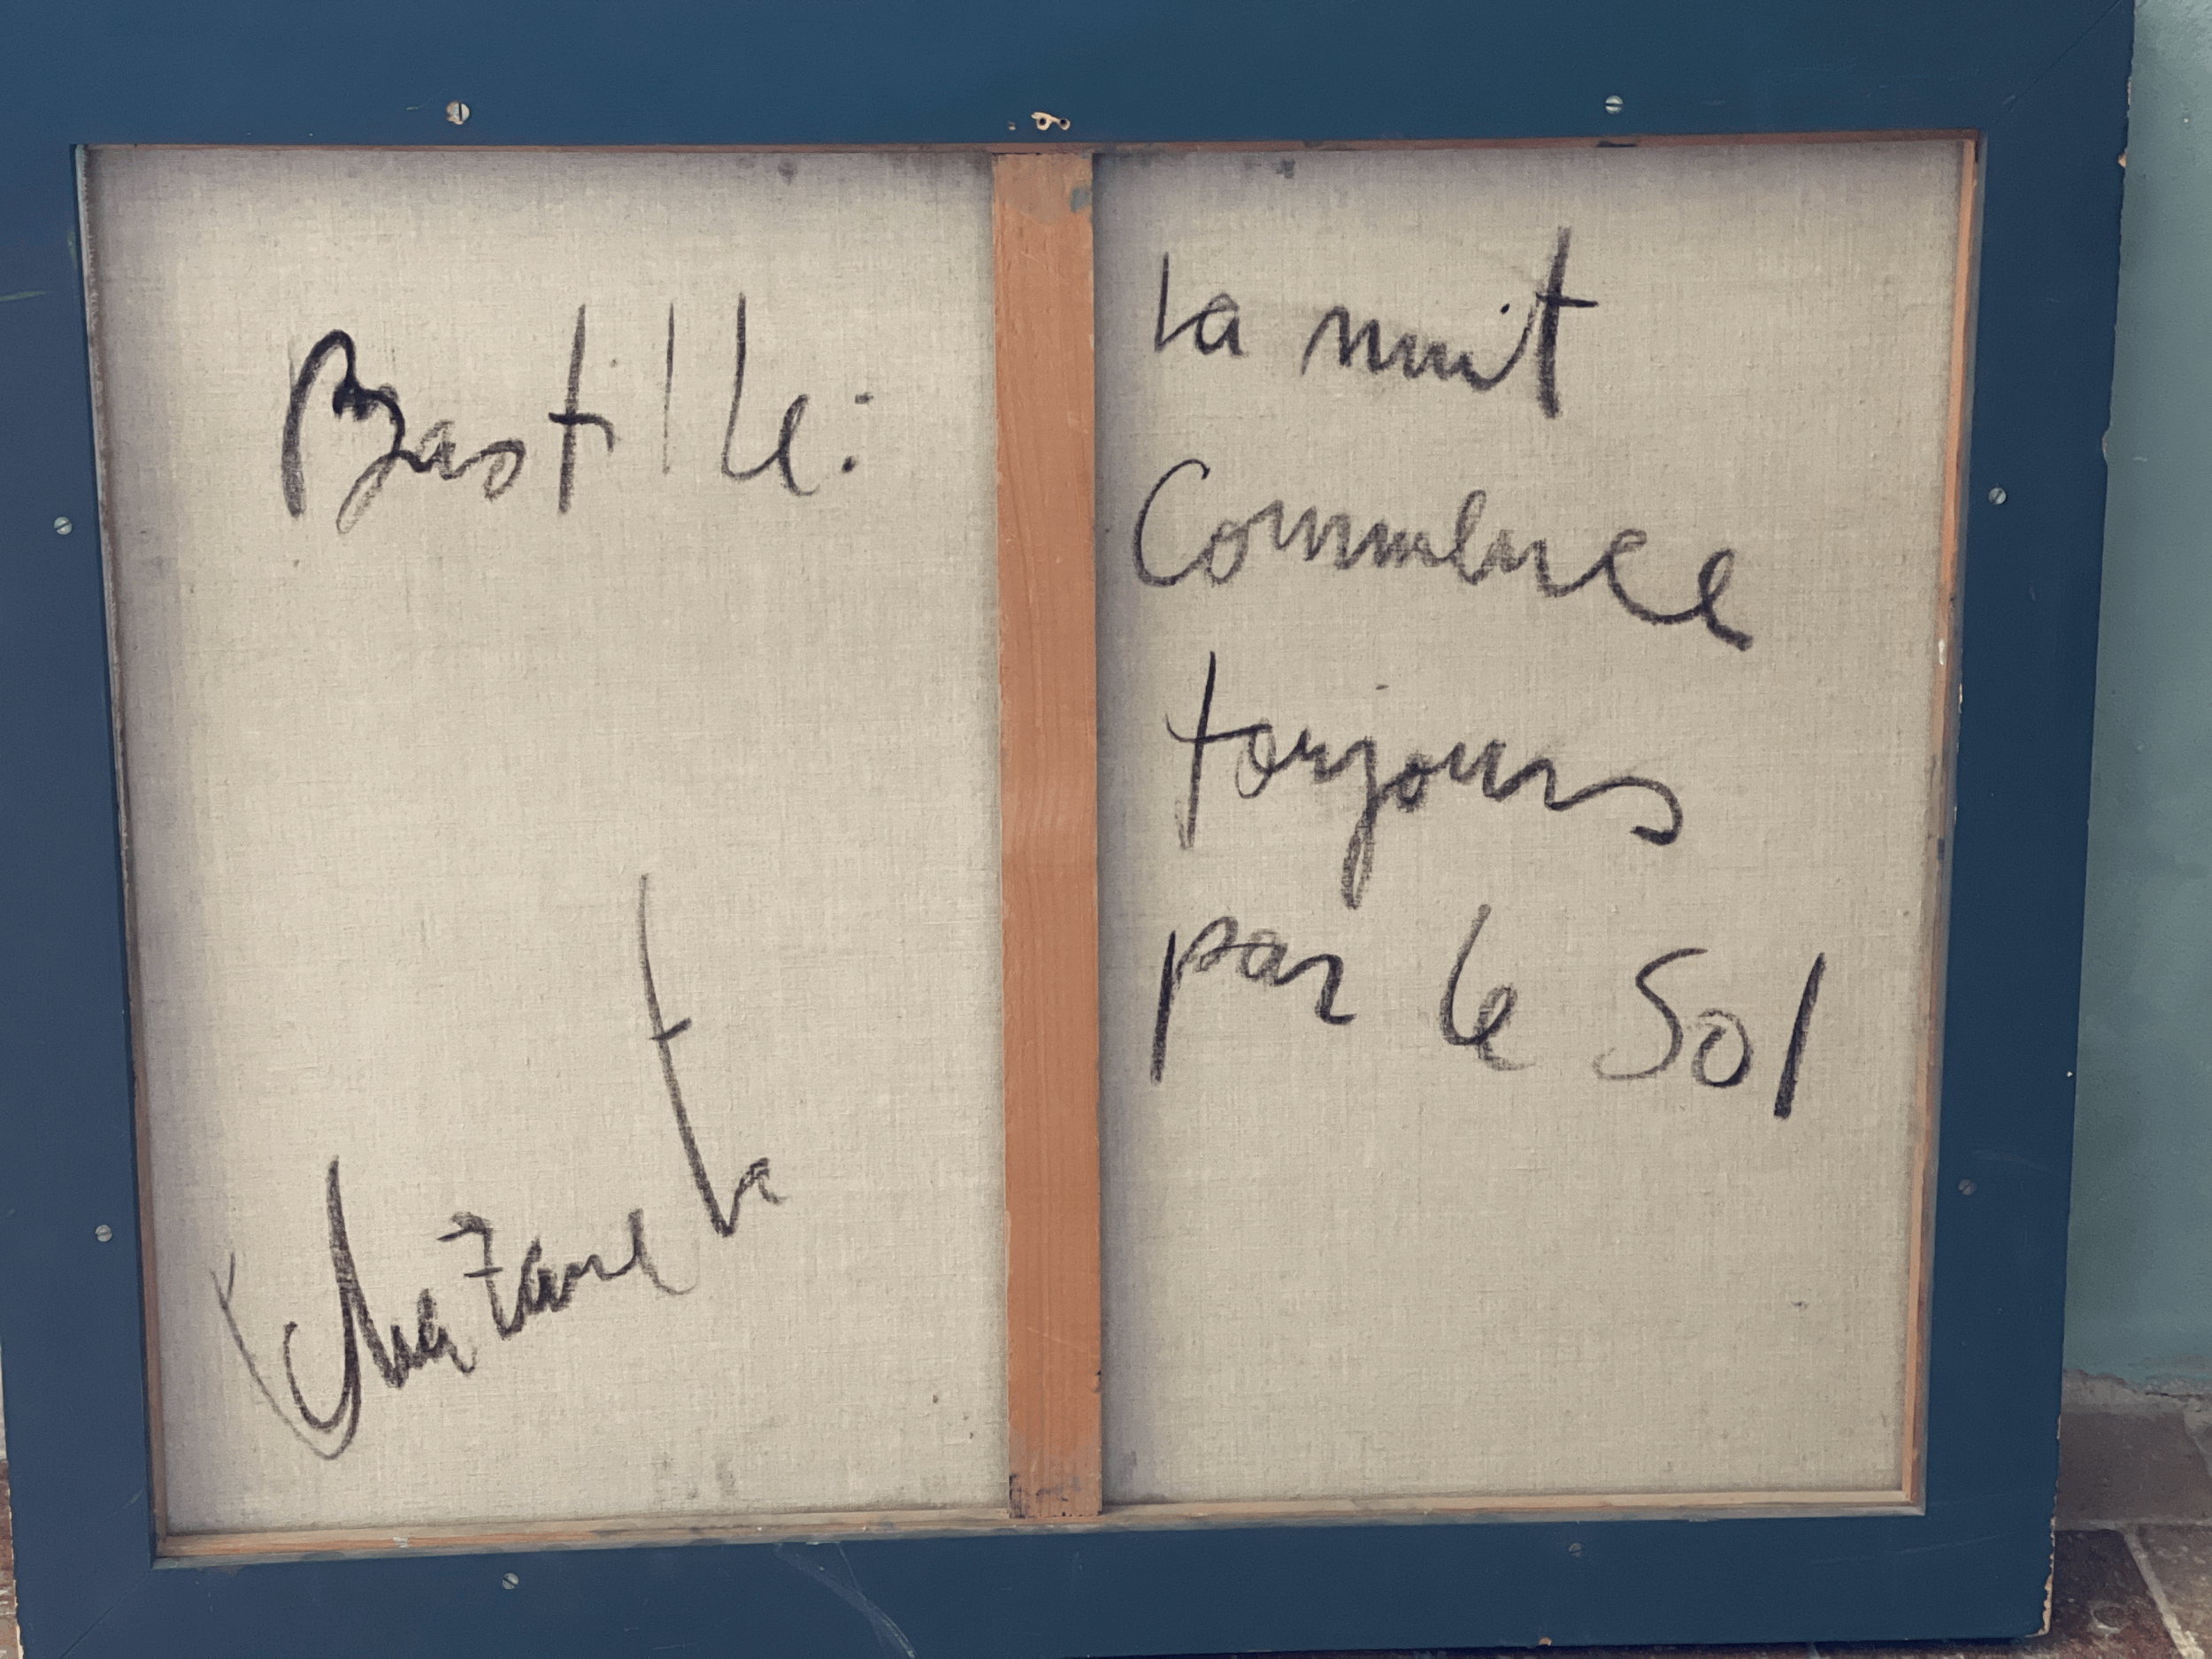 Bastille:
la nuit
Commence
toujours
par le Sol